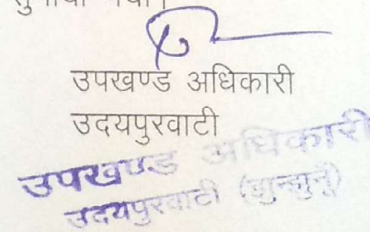 सुनाया गया।
उपखण्ड अधिकारी
उदयपुरवाटी
उपखण्ड अधिकारी
उदयपुरवाटी (झुन्झुनू)